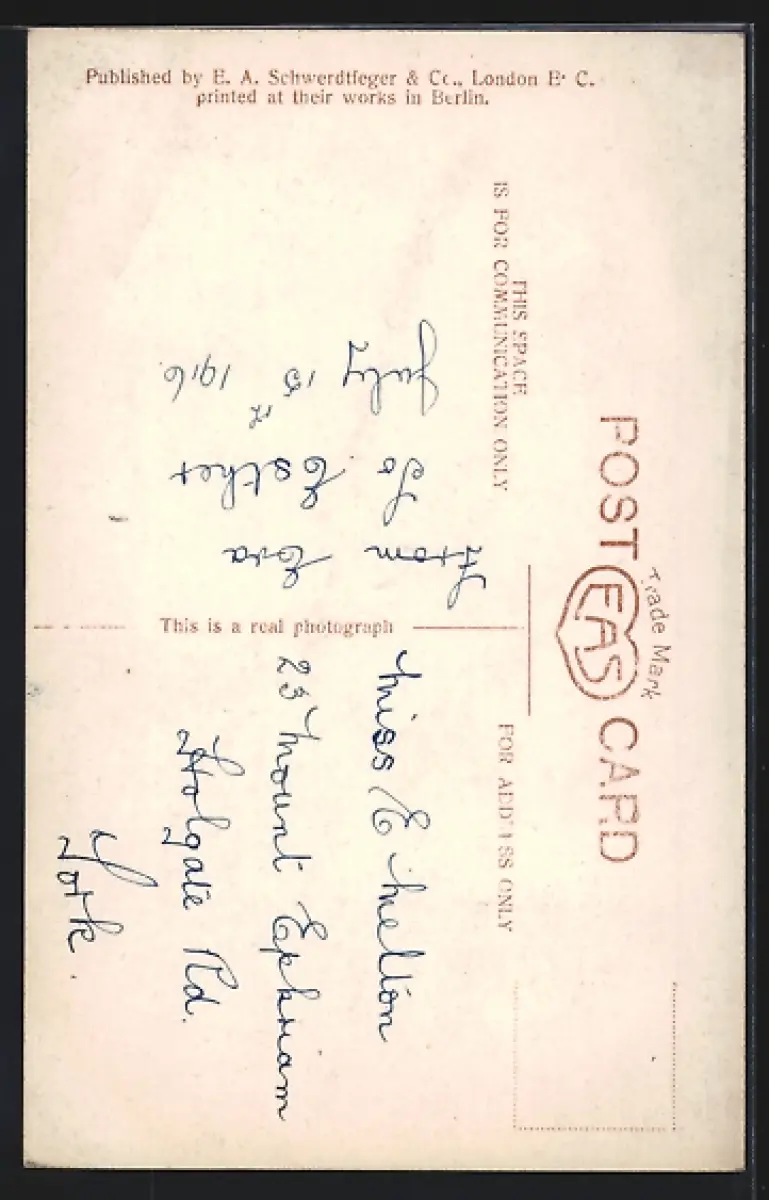 Published by E. A. Schwerdtfeger & Co., London E. C.
printed at their works in Berlin.
POST CARD
Trade Mark
EAS
THIS SPACE
IS FOR COMMUNICATION ONLY
FOR ADDRESS ONLY
This is a real photograph
July 15th 1916
To Esther
From Eva
Miss E Melton
23 Mount Ephriam
Holgate Rd.
York.